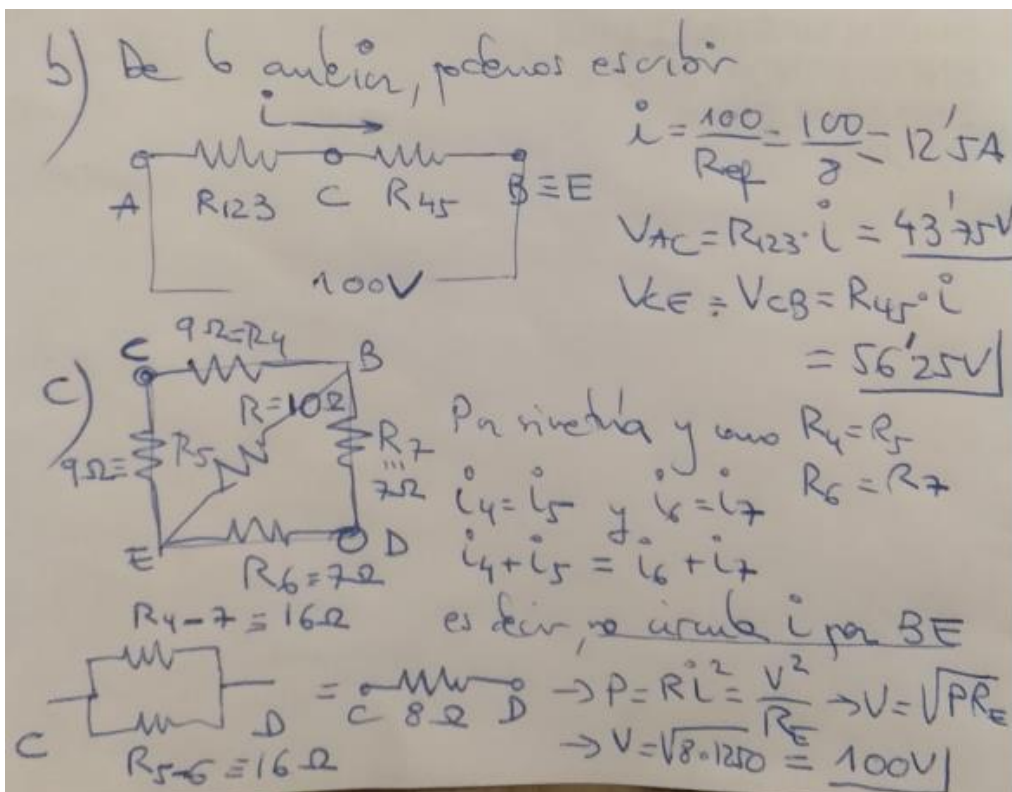 b) De lo anterior, podemos escribir
i
A R123 C R45 B≡E
100V
i = 100/Req = 100/8 = 12'5A
VAC = R123·i = 43'75V
VCE = VCB = R45·i
= 56'25V
c)
C 9Ω=R4 B
R=10Ω
9Ω≡ R5
R7
≡
7Ω
E R6=7Ω D
Por simetría y como R4=R5
R6=R7
i4=i5 y i6=i7
i4+i5 = i6+i7
es decir, no circula i por BE
R4-7 ≡ 16Ω
C D = C 8Ω D
R5-6 ≡ 16Ω
→ P=Ri²= V²/RE → V=√PRE
→ V=√8·1250 = 100V